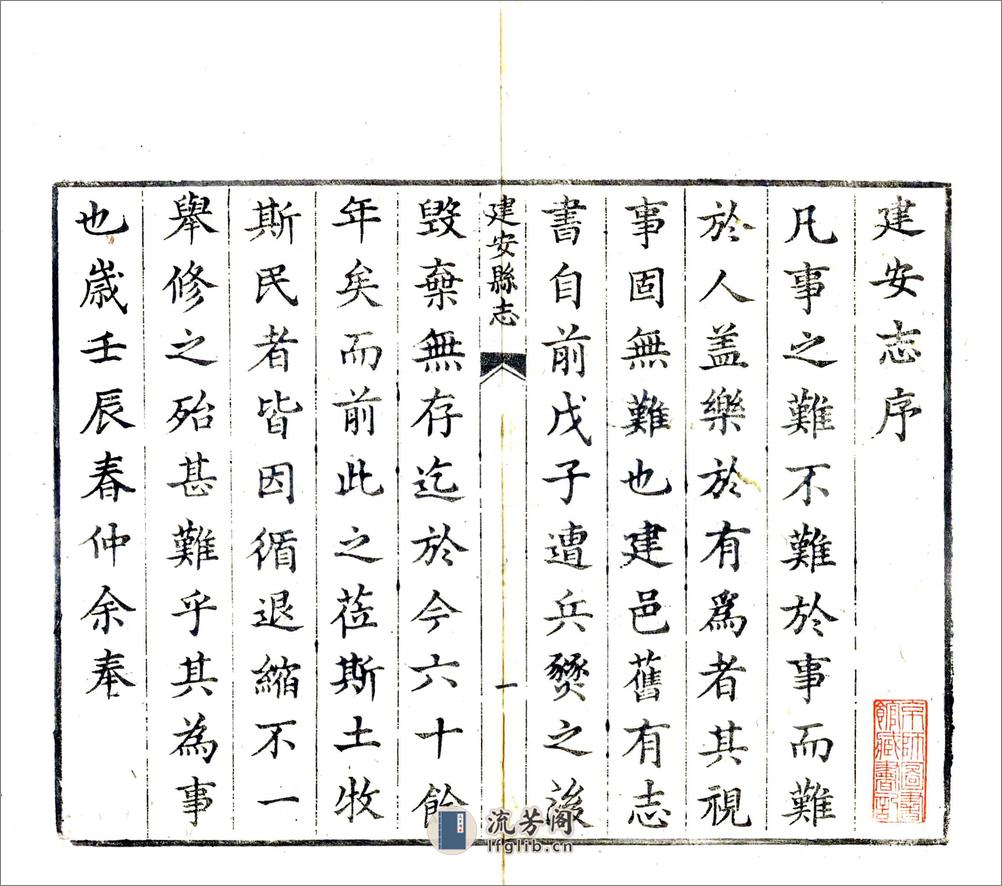 建安志序
凡事之難不難於事而難
於人盖樂於有爲者其視
事固無難也建邑舊有志
書自前戊子遭兵燹之後
建安縣志
一
毀棄無存迄於今六十餘
年矣而前此之莅斯土牧
斯民者皆因循退縮不一
舉修之殆甚難乎其為事
也歲壬辰春仲余奉
京師圖書
館藏書記
流芳阁
lfglib.cn